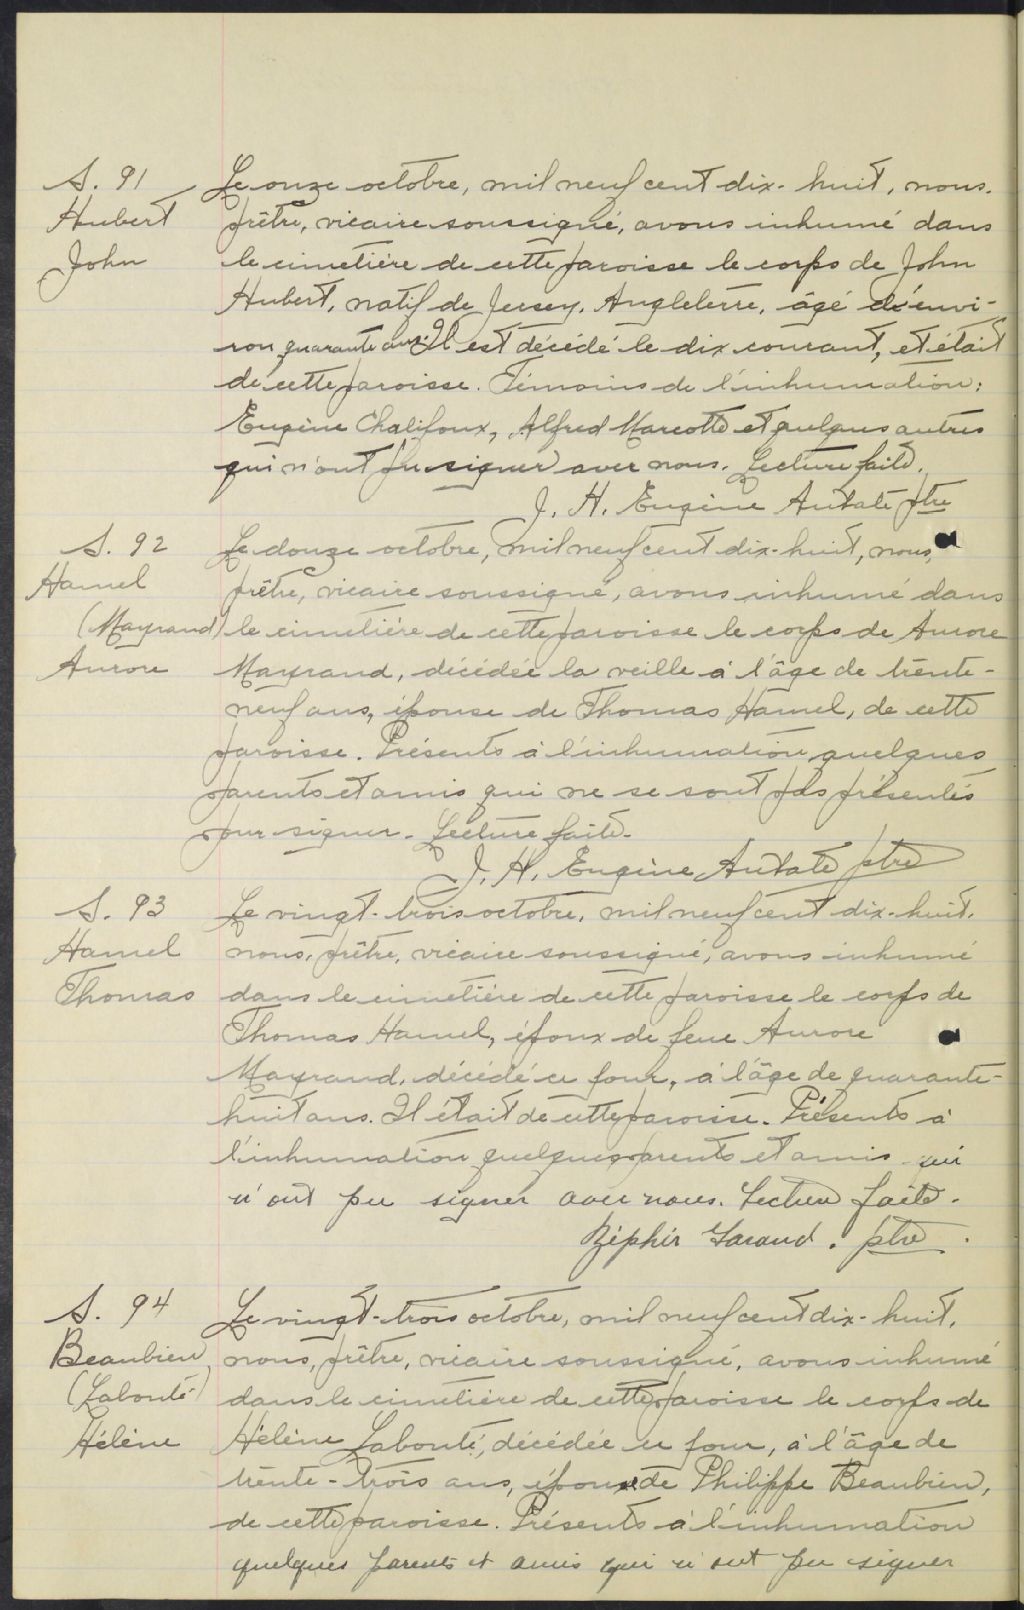 S. 91
Hubert
John
Le onze octobre, mil neuf cent dix-huit, nous,
prêtre, vicaire soussigné, avons inhumé dans
le cimetière de cette paroisse le corps de John
Hubert, natif de Jersey, Angleterre, âgé d'envi-
ron quarante ans. Il est décédé le dix courant, et était
de cette paroisse. Témoins de l'inhumation:
Eugène Chalifoux, Alfred Marcotte et quelques autres
qui n'ont pu signer avec nous. Lecture faite.
J. H. Eugène Autate ptre
S. 92
Hamel
(Mayrand)
Aurore
Le douze octobre, mil neuf cent dix-huit, nous,
prêtre, vicaire soussigné, avons inhumé dans
le cimetière de cette paroisse le corps de Aurore
Mayrand, décédée la veille à l'âge de trente-
neuf ans, épouse de Thomas Hamel, de cette
paroisse. Présents à l'inhumation quelques
parents et amis qui ne se sont pas présentés
pour signer. Lecture faite.
J. H. Eugène Autate ptre
S. 93
Hamel
Thomas
Le vingt-trois octobre, mil neuf cent dix-huit,
nous, prêtre, vicaire soussigné, avons inhumé
dans le cimetière de cette paroisse le corps de
Thomas Hamel, époux de feue Aurore
Mayrand, décédé ce jour, à l'âge de quarante-
huit ans. Il était de cette paroisse. Présents à
l'inhumation quelques parents et amis qui
n'ont pu signer avec nous. Lecture faite.
Zéphir Garand. ptre.
S. 94
Beaubien
(Labonté)
Hélène
Le vingt-trois octobre, mil neuf cent dix-huit,
nous, prêtre, vicaire soussigné, avons inhumé
dans le cimetière de cette paroisse le corps de
Hélène Labonté, décédée ce jour, à l'âge de
trente-trois ans, épouse de Philippe Beaubien,
de cette paroisse. Présents à l'inhumation
quelques parents et amis qui n'ont pu signer